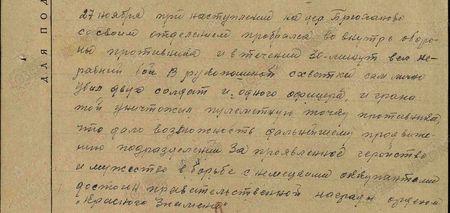 27 ноября при наступлении на дер Брюханово
со своим отделением прорвался во внутрь оборо-
ны противника и в течении 30-минут вел не-
равный бой В рукопашной схватке сам лично
убил двух солдат и одного офицера, и грана
той уничтожил пулеметную точку противника,
что дало возможность дальнейшему продвиже-
нию подразделений За проявленное геройство
и мужество в борьбе с немецкими оккупантами
достоин правительственной награды орденом
"Красного Знамени"
ДЛЯ ПОД